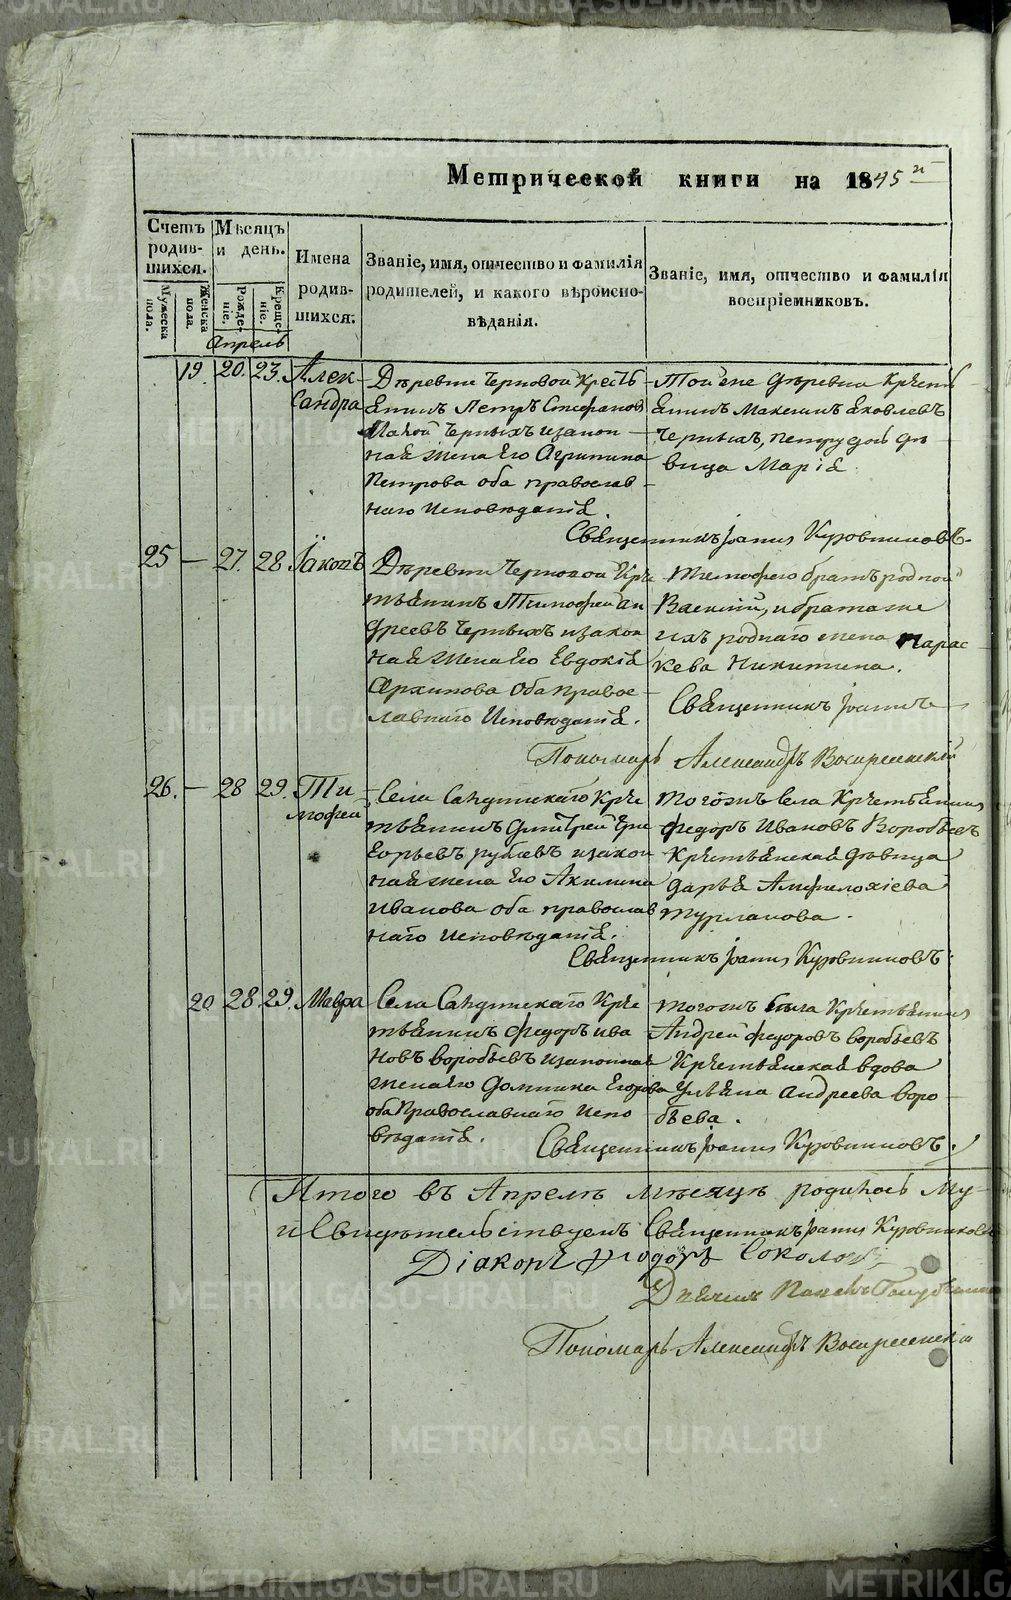 Метрической книги на 1845й
Счетъ родив-шихся.
Мѣсяцъ и день.
Имена родив-шихся.
Званіе, имя, отчество и фамилія родителей, и какого вѣроиспо-вѣданія.
Званіе, имя, отчество и фамилія воспріемниковъ.
Мужеска пола.
Женска пола.
Рожде-ніе.
Креще-ніе.
Апрель
19. 20. 23. Алек-
сандра
Деревни Черновой Кресть
янинъ Петръ Стефановъ
Черныхъ изакон
ная жена Его Агрипина
Петрова оба православ
наго Исповѣданія.
Той же деревни Крест
янинъ Максимъ Яковлевъ
Черныхъ, дѣ
вица Марія
Священникъ Іоаннъ Куровниковъ.
25 — 27. 28 Іаковъ
Деревни Черновой Кре
тьянинъ Тимофей Ан
дреевъ Черныхъ изакон
ная жена Его Евдокія
Архипова Оба Право
лавнаго Исповѣданія.
Тимофею братъ родной
Василій, и брата же
ихъ роднаго жена Парас
кева Никитина.
Священникъ Іоаннъ
Пономарь Александръ Воскресенскій
26. — 28 29. Ти
мофей
Села Кре
тьянинъ Дмитрей Гри
горьевъ Рублевъ изакон
ная жена Его Акилина
Иванова оба православ
наго Исповѣданія.
Тогожъ села Крестьянинъ
Федоръ Ивановъ Воробьевъ
Крестьянская дѣвица
Дарья Амфелохіева
Турланова.
Священникъ Іоаннъ Куровниковъ
20 28. 29. Мавра
Села Кре
тьянинъ Федоръ Ива
новъ Воробьевъ изаконная
жена Его Домника Егорова
оба Православнаго Испо
вѣданія.
Тогожъ села Крестьянинъ
Андрей Федоровъ Воробьевъ
Крестьянская вдова
Ульяна Андреева Воро
бьева.
Священникъ Іоаннъ Куровниковъ.
Итого въ Апрелѣ мѣсяцѣ родилось Му-
и Свидѣтельствуемъ Священникъ Іоаннъ Куровниковъ
Діаконъ Ѳеодоръ Соколовъ
Дьячекъ Павелъ
Пономарь Александръ Воскресенскій
METRIKI.GASO-URAL.RU